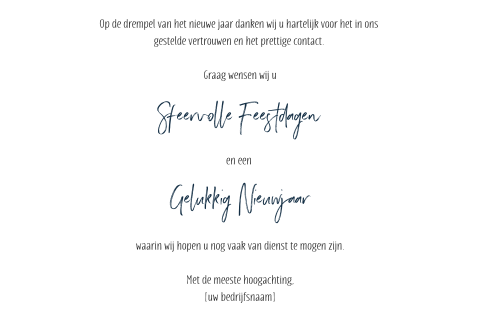 Op de drempel van het nieuwe jaar danken wij u hartelijk voor het in ons
gestelde vertrouwen en het prettige contact.
Graag wensen wij u
Sfeervolle Feestdagen
en een
Gelukkig Nieuwjaar
waarin wij hopen u nog vaak van dienst te mogen zijn.
Met de meeste hoogachting,
(uw bedrijfsnaam)